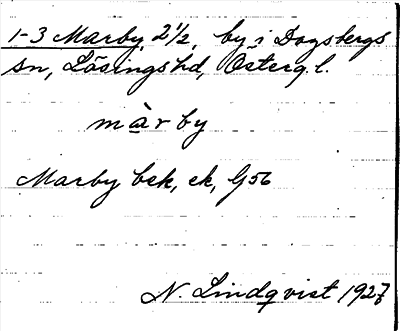 1-3 Marby, 2 1/2, by i Dagsbergs
sn, Lösings hd, Österg. l.
màrby
Marby bek, ek, G56
N. Lindqvist 1927